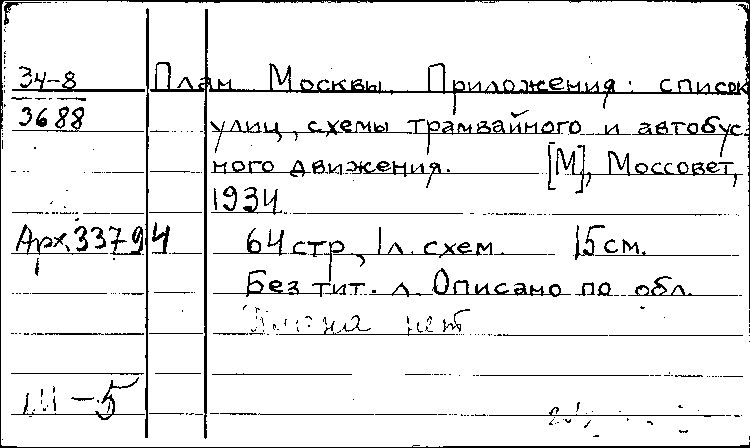 34-8 План Москвы. Приложения: список
3688 улиц, схемы трамвайного и автобус-
ного движения. [М], Моссовет,
1934
Арх.33794 64 стр., 1 л. схем. 15 см.
Без тит. л. Описано по обл.
нет
Ш-5